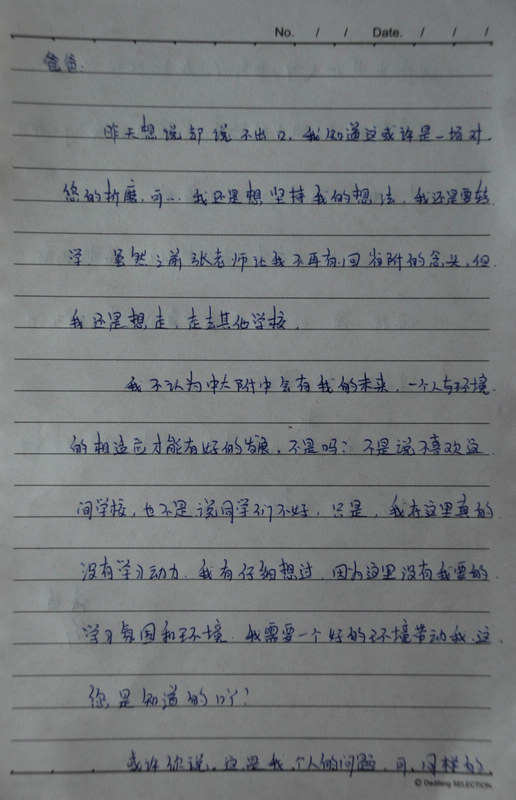 No.    /    /    Date.    /    /    /
爸爸.
昨天想说却说不出口,我知道这或许是一场对
您的折磨,可…我还是想坚持我的想法,我还是要转
学 虽然之前张老师让我不再有回省附的念头,但
我还是想走,走去其他学校.
我不认为中大附中会有我的未来,一个人与环境
的相适应才能有好的发展,不是吗?不是说不喜欢这
间学校,也不是说同学们不好,只是,我在这里真的
没有学习动力.我有仔细想过,因为这里没有我要的
学习氛围和环境.我需要一个好的环境带动我.这
你是知道的吖?
或许你说,这是我个人的问题,可,同样的
© Dadifang SELECTION